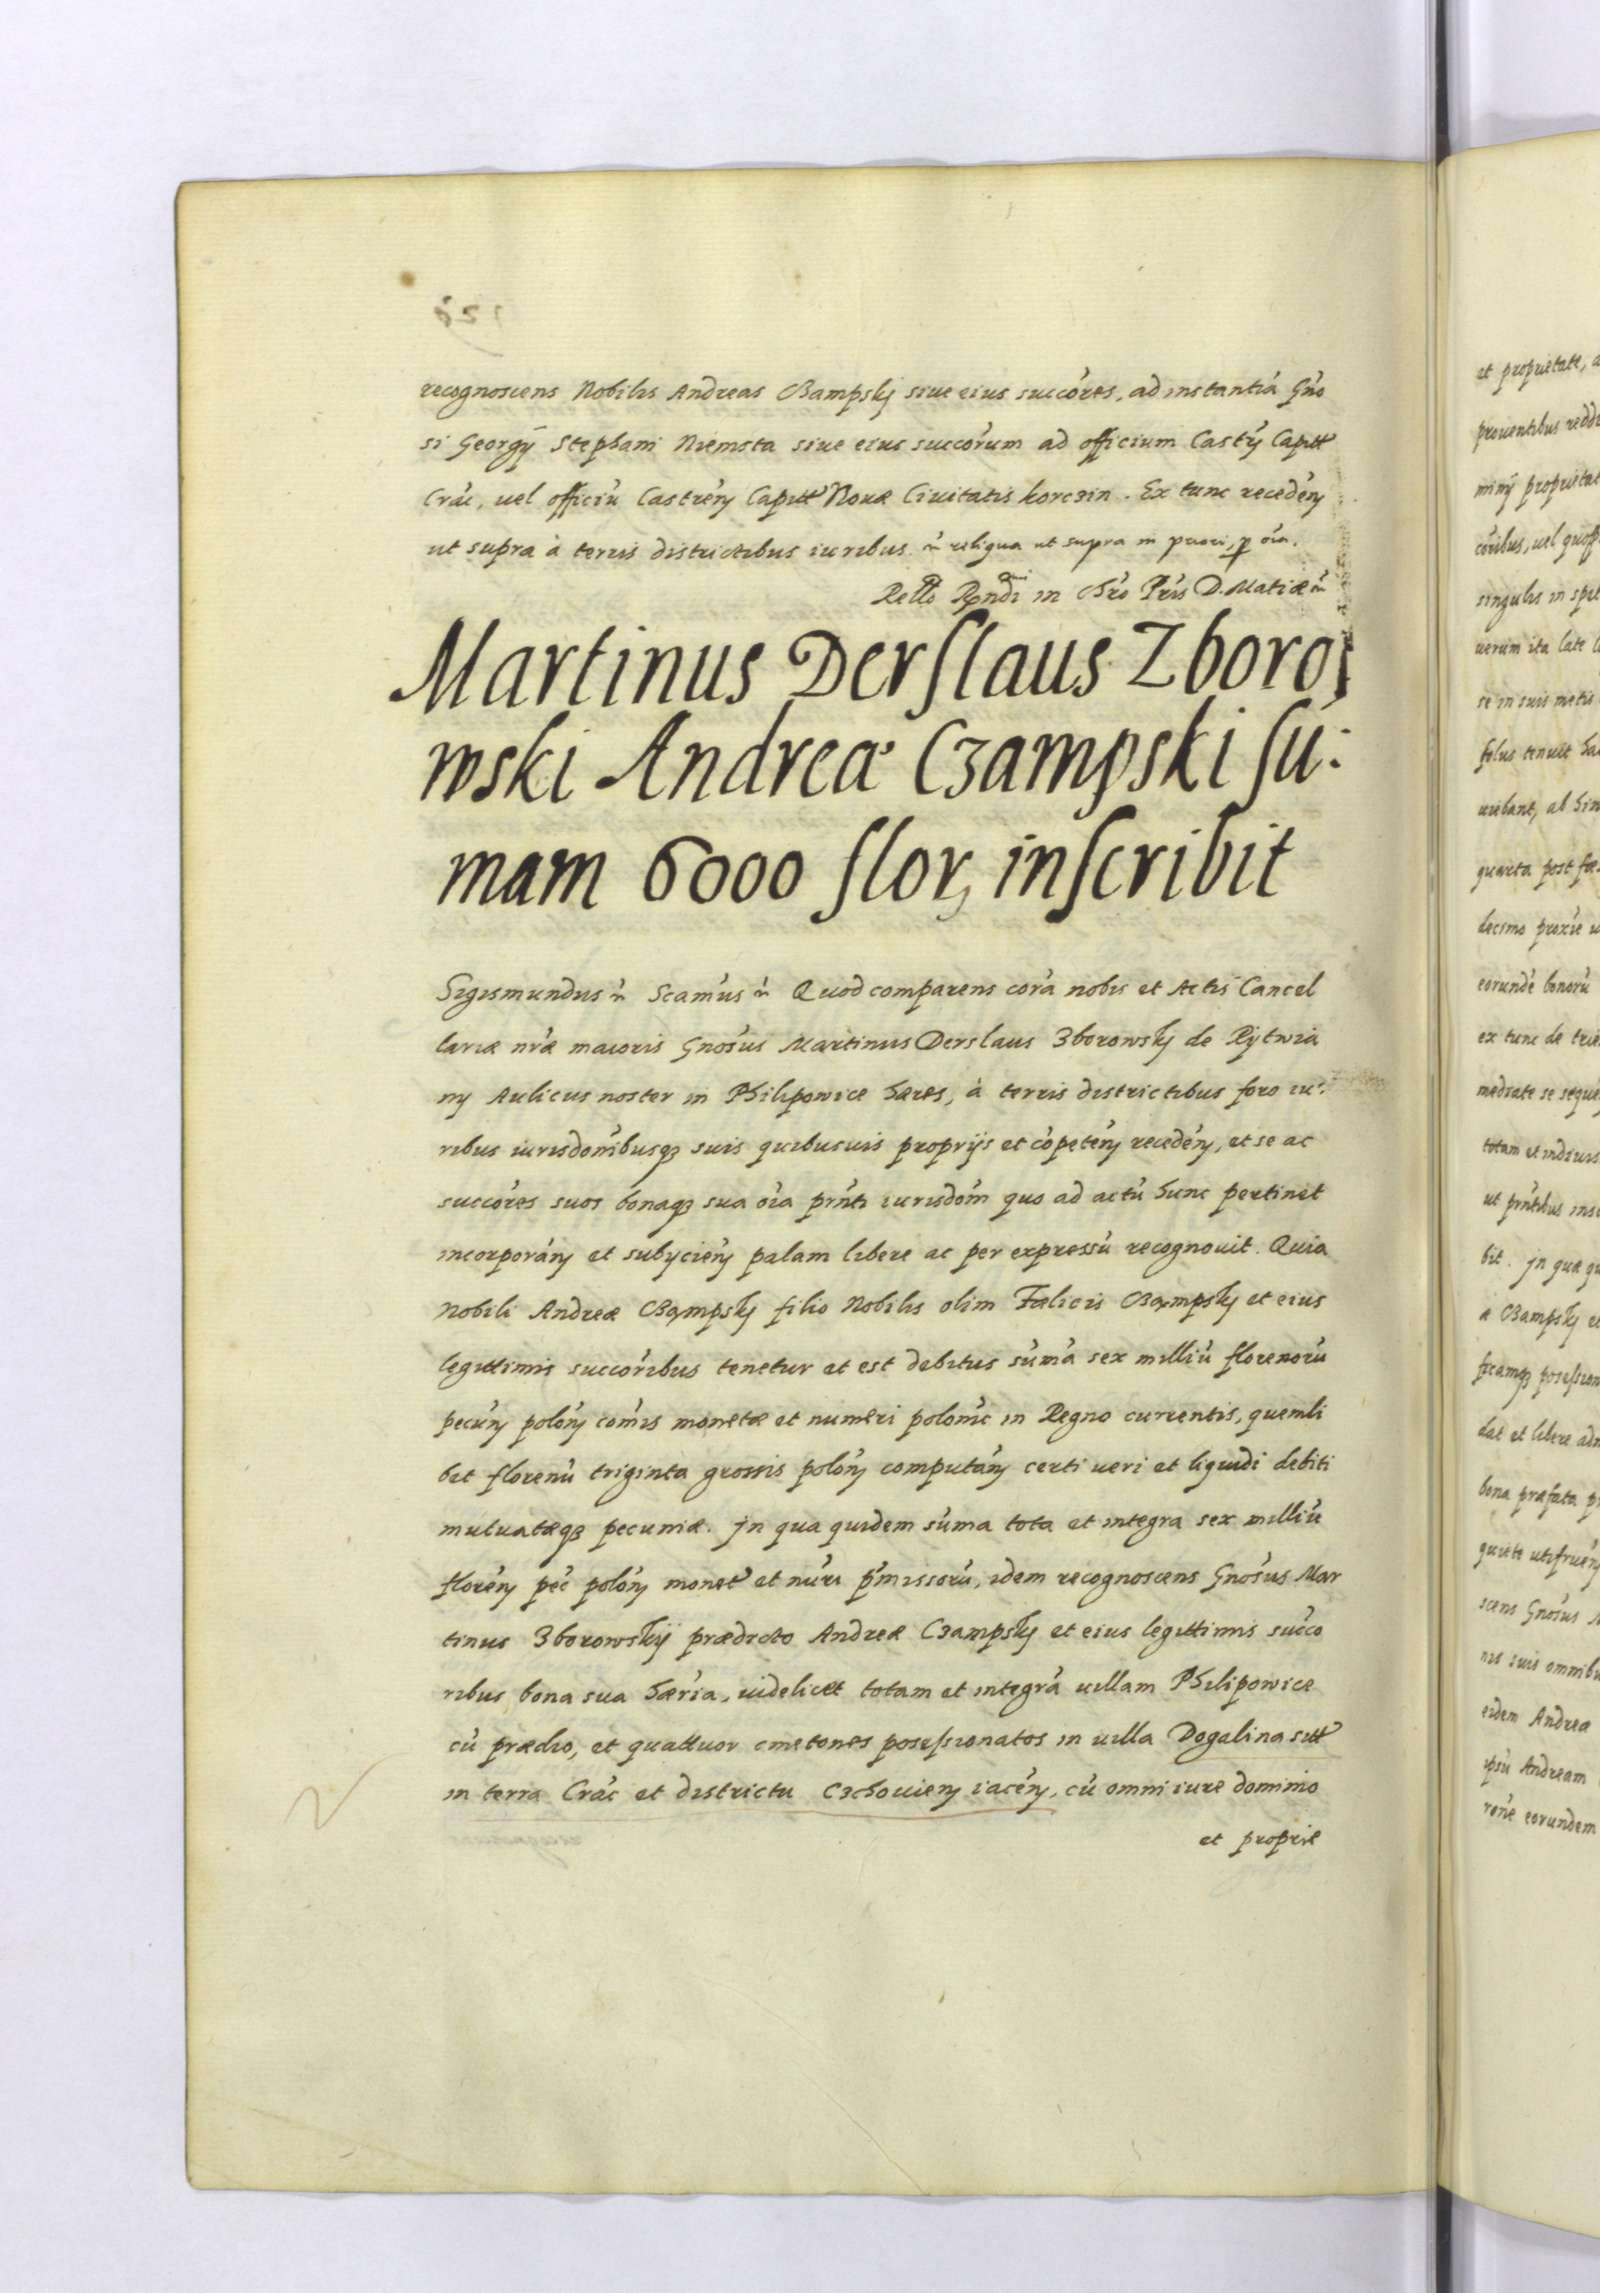 recognoscens Nobilis Andreas Czampskÿ siue eius succores, ad instantiá Gno
si Georgÿ Stephani Niemsta siue eius succorum ad officium Castrÿ Capitt
Crac, uel officiú Castreny Capitt Nouæ Ciuitatis Korczin. Ex tunc recedeny
ut supra à terris districtibus iuribus reliqua ut supra in priori, p oia.
in D. Matiæ
Martinus Derslaus Zboro
wski Andreæ Czampski su:
mam 6000 flor, inscribit
Sigismundus Scamus Quod comparens corá nobis et Actis Cancel
lariæ nræ maioris Gnosus Martinus Derslaus Zborowskÿ de Rÿtwia
nÿ Aulicus noster in Philipowice hæres, à terris districtibus foro iu:
ribus iurisdonibusq3 suis quibusuis proprijs et cópeteny recedeny, et se ac
succores suos bonaq3 sua oia prnti iurisdom quo ad actú hunc pertinet
incorporany et subÿcieny palam libere ac per expressú recognouit. Quia
Nobili Andreæ Czampskÿ filio Nobilis olim Fælicis Czampskÿ et eius
legittimis succoribus tenetur et est debitus súmá sex milliú florenorú
pecuny polony comis monetæ et numeri polonic in Regno currentis, quemli
bet florenú triginta grossis polony computany certi ueri et liquidi debiti
mutuatæq3 pecuniæ. Jn qua quidem súma tota et integra sex milliú
floreny pec polony monet et nuri pmissorú, idem recognoscens Gnosus Mar
tinus Zborowskÿ prædicto Andreæ Czampskÿ et eius legittimis succo
ribus bona sua hæria, uidelicet totam et integrá uillam Philipowice
cú prædio, et quattuor cmetones posessionatos in uilla Dogalina sitt
in terra Crac et districtu Czchouieny iaceny, cú omni iure dominio
et propriæ
et proprietate, a
prouentibus reddi
minÿ proprietat
coribus, uel quosp
singulis in spet
uerum ita late l
se in suis metis
solus tenuit ha
uiebant, ab hin
quarta post fæ
decimo proxie u
eorundé bonorú
ex tunc de trie
mediate se seque
totam et indiuis
ut prntibus ins
bit. Jn quæ qu
æ Czampskÿ et
ficamq3 posession
dat et libere adm
bona præfata p
quiete utifrueny
scens Gnosus M
nis suis omnibu
eidem Andreæ
ipsú Andream
rone eorundem